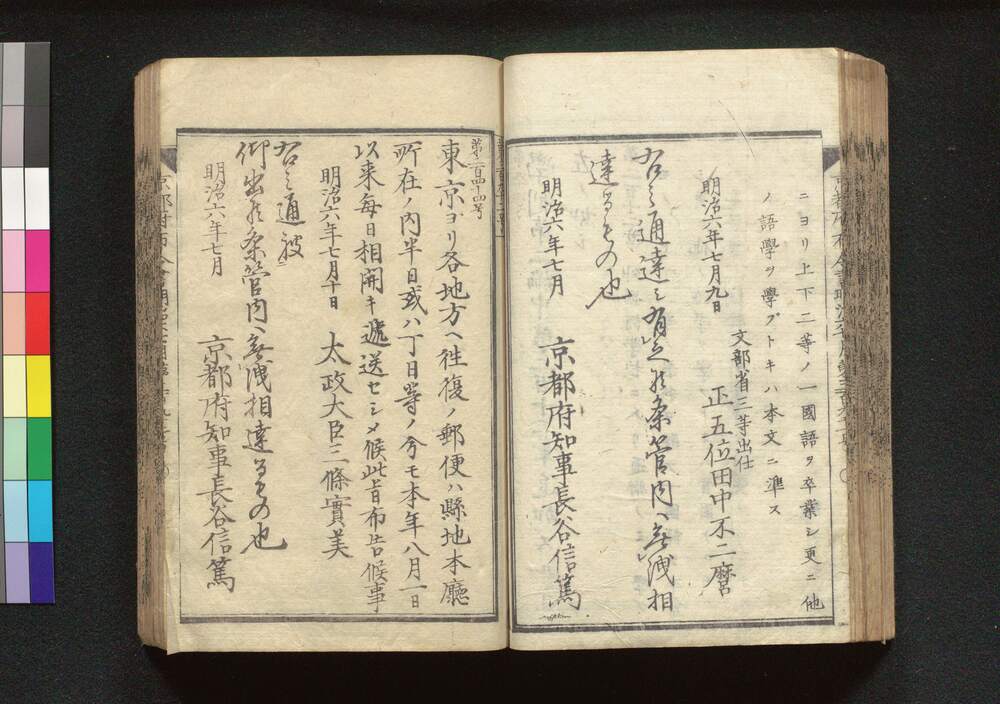 ニヨリ上下二等ノ一國語ヲ卒業シ更ニ他
ノ語學ヲ學ブトキハ本文ニ準ス
文部省三等出仕
明治六年七月九日
正五位田中不二麿
右之通達シ有之候条管内ヘ無洩相
達するもの也
明治六年七月
京都府知事長谷信篤
第二百四十四号
東京ヨリ各地方ヘ往復ノ郵便ハ縣地本廳
所在ノ内半日或ハ丁日等ノ分モ本年八月一日
以来毎日相開キ遞送セシメ候此旨布告候事
明治六年七月十日
太政大臣三條實美
右之通被
仰出候条管内ヘ無洩相達するもの也
明治六年七月
京都府知事長谷信篤